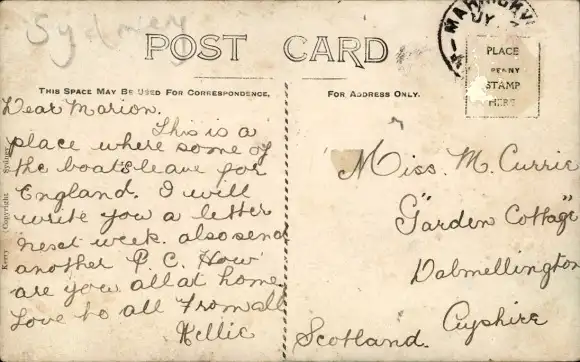 Sydney
POST CARD
MARRICKV
JY
PLACE
PENNY
STAMP
HERE
THIS SPACE MAY BE USED FOR CORRESPONDENCE.
FOR ADDRESS ONLY.
Dear Marion.
This is a
place where some of
the boats leave for
England. I will
write you a letter
next week. also send
another P. C. How
are you all at home.
Love to all from all
Nellie
Miss. M. Currie
"Garden Cottage"
Dalmellington
Ayrshire
Scotland.
Kerry Copyright Sydney